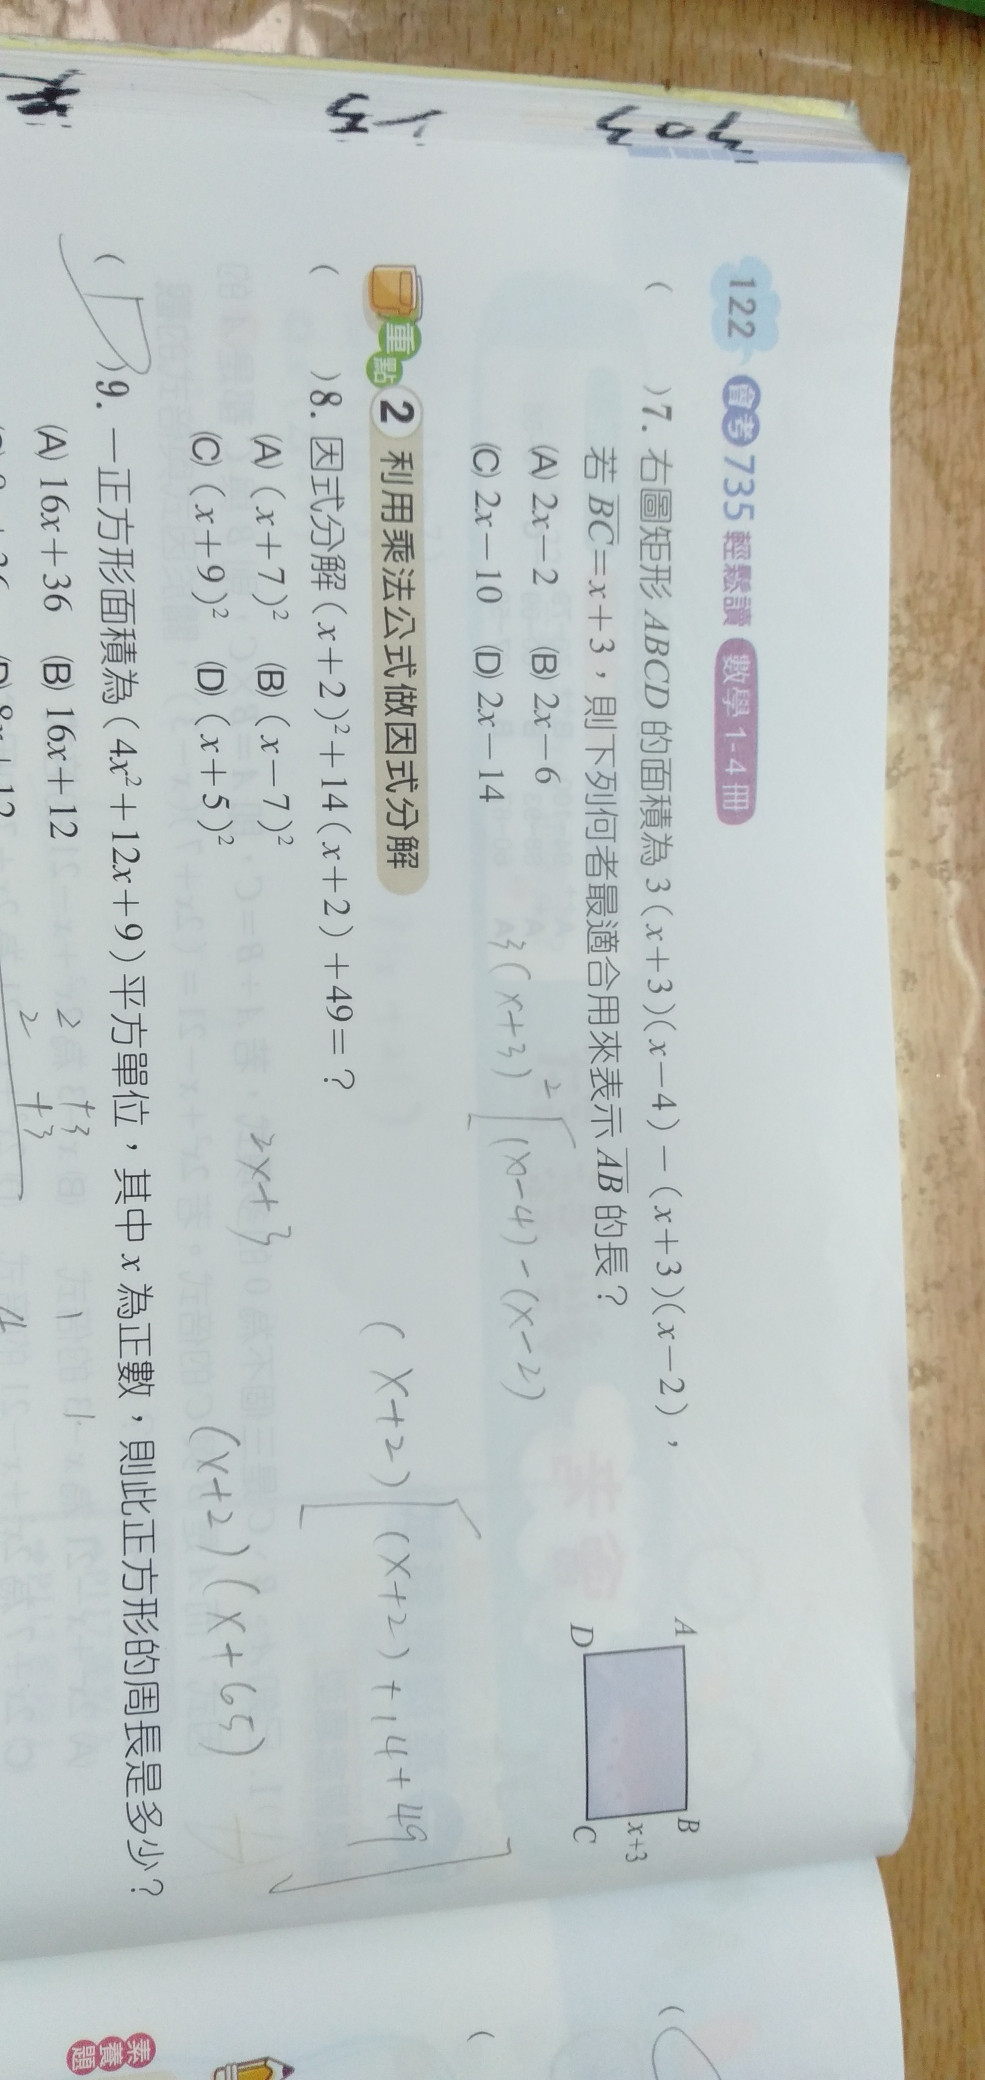 122 會考735 輕鬆讀 數學1-4冊
( )7. 右圖矩形ABCD的面積為3(x+3)(x-4)-(x+3)(x-2),
若BC=x+3,則下列何者最適合用來表示AB的長?
(A) 2x-2 (B) 2x-6
(C) 2x-10 (D) 2x-14
A B
x+3
D C
3(x+3)[(x-4)-(x-2)
重點2 利用乘法公式做因式分解
( )8. 因式分解(x+2)²+14(x+2)+49=?
(A) (x+7)² (B) (x-7)²
(C) (x+9)² (D) (x+5)²
(x+2)[(x+2)+14+49]
2x+3
(x+2)(x+65)
(D)9. 一正方形面積為(4x²+12x+9)平方單位,其中x為正數,則此正方形的周長是多少?
(A) 16x+36 (B) 16x+12
2 +3
2 +3
素養題